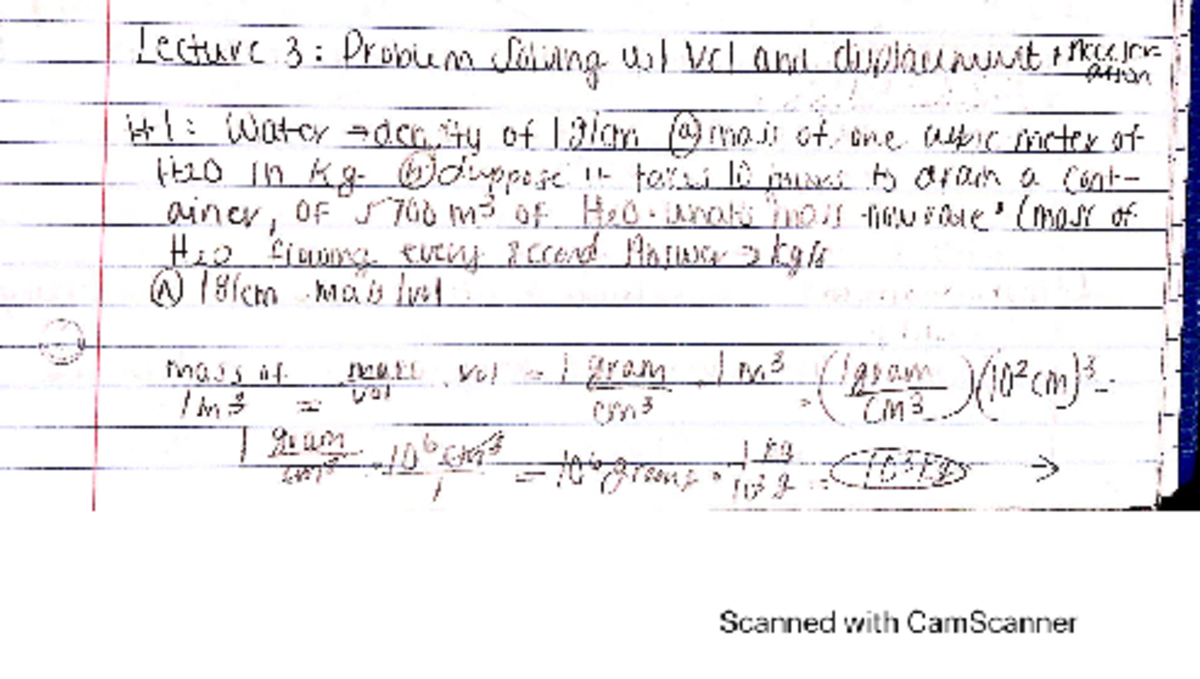 Lecture 3: Problem Solving w/ Vel and displacement + Acceleration
H1: Water → density of 1g/cm (a) mass of one cubic meter of
H2O in kg. (b) Suppose it takes 10 to drain a cont-
ainer, of 5700 m³ of H2O. whats mass flow rate? (mass of
H2O flowing every second. Answer → kg/s
(A) 1g/cm mass/vol
mass of 1m³ = mass/vol · vol = 1 gram/cm³ · 1 m³ = (1gram/cm³)(10²cm)³ =
1 gram/cm³ · 10⁶ cm³/1 = 10⁶ grams · 1 kg/10³ g = 10³ kg →
Scanned with CamScanner